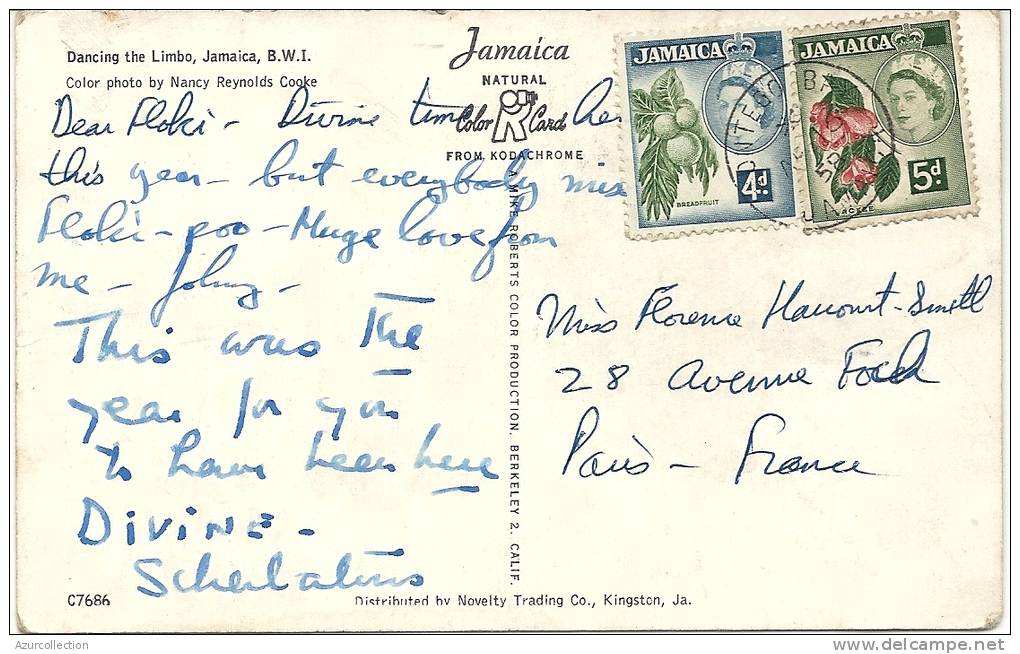 Dancing the Limbo, Jamaica, B.W.I.
Color photo by Nancy Reynolds Cooke
Jamaica
NATURAL
Color Card
FROM KODACHROME
Dear Floki - Divine time her
this year - but everybody miss
Floki-poo - Huge love from
me - Johny -
This was THE
year for you
to have been here
DIVINE -
Scherbatins
C7686
Distributed by Novelty Trading Co., Kingston, Ja.
A MIKE ROBERTS COLOR PRODUCTION. BERKELEY 2. CALIF.
JAMAICA
4d.
BREADFRUIT
JAMAICA
5d.
ACKEE
Miss Florence Harcourt-Smith
28 Avenue Foch
Paris - France
Azurcollection
http://www.delcampe.net